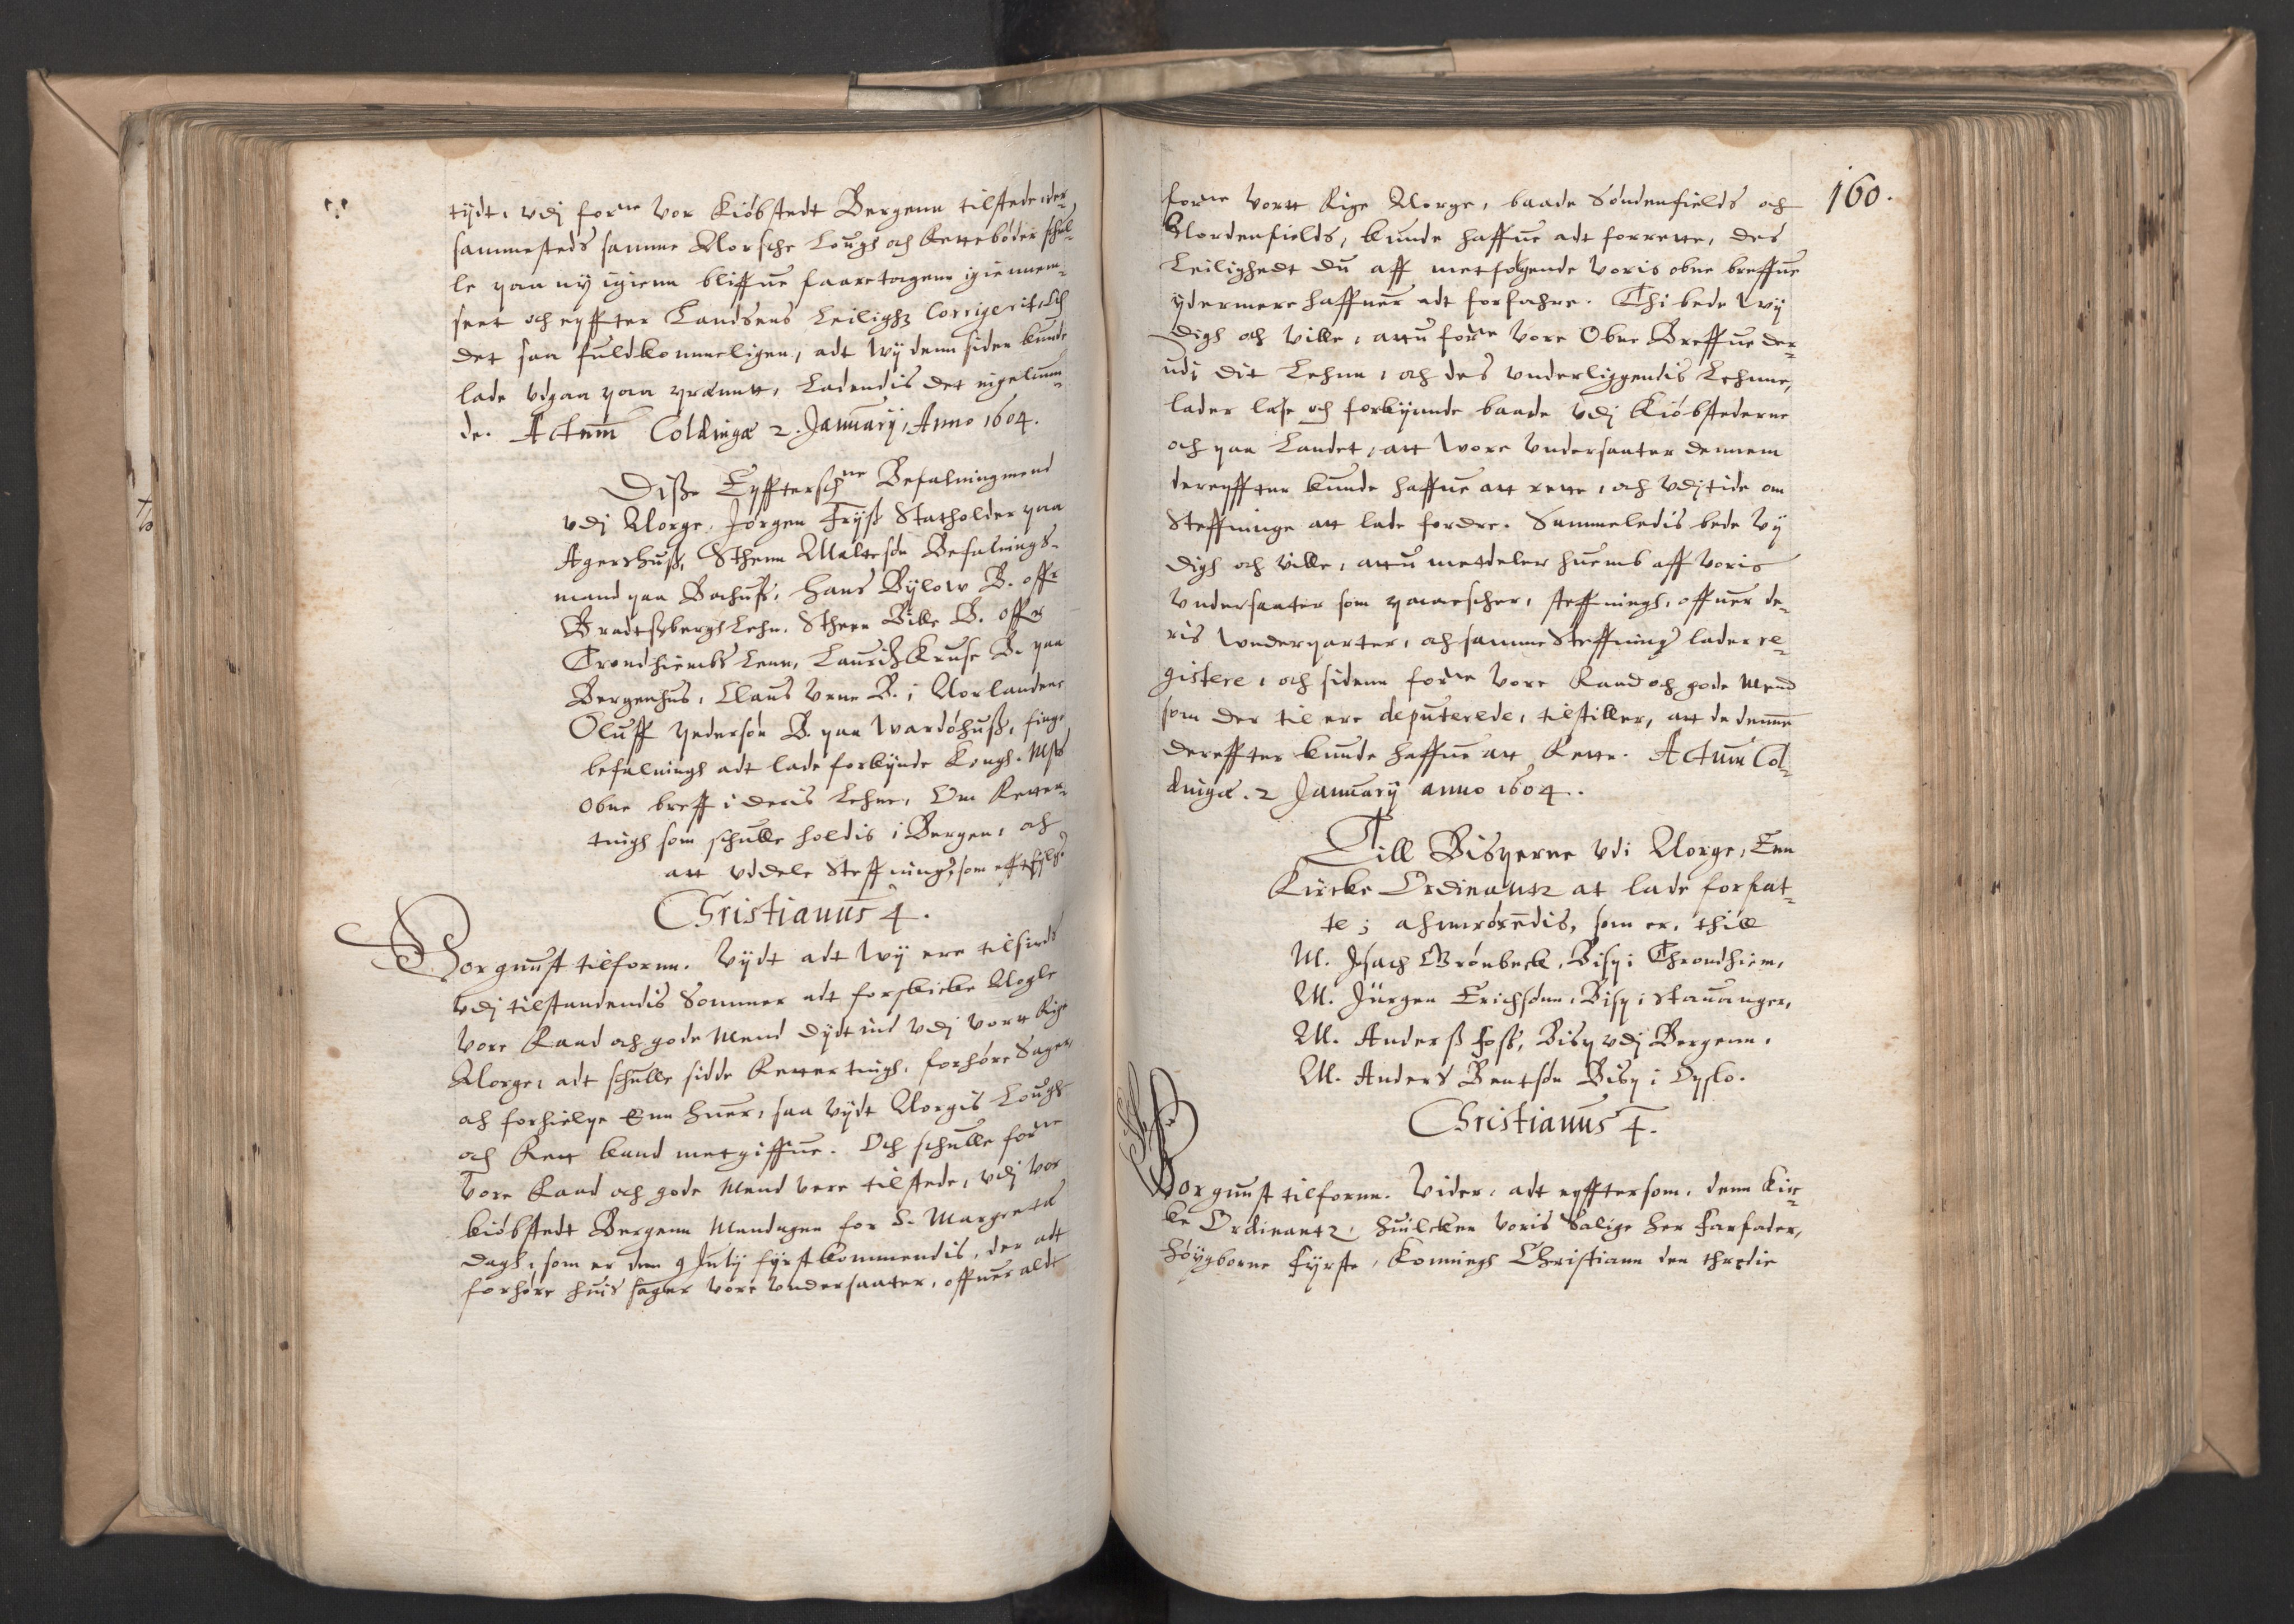 tijdt, vdj forne vor Kiøbstedt Bergenn tilstede, der¬
sammesteds samme Norsche Lough och Rettebøder schul¬
le paa ny igienn bliffue faaretagenn igiennem¬
seet och epffter Landsens Leiligh: Corrigerit, Och
det saa fuldkommeligen, adt wij denn siden kunde
lade vdgaa paa prenntt, Ladendis det eigelunn¬
de. Actum Coldingæ 2. Januarij, Anno 1604.
Disse Epfftersch:ne Befalningmend
vdj Norge, Jørgen Frijss Statholder paa
Agershuss, Sthenn Maltesøn Befalnings-
mand paa Bahuss, Hans Bylow B. offr
Bradtssbergh Lehn, Sthenn Bille B. offr
Trondhiembs Lenn, Lauridz Kruse B. paa
Bergenhus, Claus Vrne B. i Norlandene
Oluff Pedersøn B. paa Wardøhuss, finge
befalningh adt lade forkynde Kongh. Mtts
obne breff i deris Lehne, Om Retter¬
tingh som schulle holdis i Bergen, och
att vddele Steffning, som efftfølg:
Christianus 4.
Vor gunst tilforn. Vijdt adt wij ere tilsinds
vdj tilstundendis Sommer adt forskicke Nogle
Vore Raad och gode Mend dijdt ind vdj vortt Rige
Norge, adt schulle sidde Rettertingh, forhøre Sager
och forhielpe Enn huer, saa vijdt Norgis Lough
och Rett kand metgiffue. Och schulle forne
Vore Raad och gode Mend vere tilstede, vdj vor
kiøbstedt Bergenn Mandagen for S. Margreta
dagh, som er den 9 Julij førstkommendis, der adt
forhøre huis sager vore vndersaater, offuer aldt
160.
forne vortt Rige Norge, baade Søndenfields och
Nordenfields, kunde haffue adt forrette, des
Leilighedt du aff metfølgende voris obne breffue
ydermere haffuer adt forfahre. Thi bede wij
digh och ville, attu forne vore Obne Breffue der¬
udj dit Lehnn, och des vnderliggendis Lehnne,
lader læse och forkynde baade vdj Kiøbstederne
och paa Landet, att wore vndersaater dennem
derepffter kunde haffue att rette, och vdj tide om
Steffninge att lade fordre. Sammeledis bede vij
digh och ville, attu metdeler huemb aff voris
vndersaater som paaescher, steffningh, offuer de¬
ris wnderparter, och samme Steffning lader re¬
gistere, och sidenn forne vore Raad och gode Mend
som der til ere deputerede, tilstiller, att de dennem
dereffter kunde haffue att Rette. Actum Col¬
dingæ. 2 Januarij anno 1604.
Till Bisperne vdi Norge, Enn
Kircke Ordinantz at lade forfat¬
te; som er, thill
M. Jsach Grønbeck, Bisp i Throndhiem,
M. Jürgen Erichsønn, Bisp i Stauanger,
M. Anderss foss, Bisp vdj Bergenn,
M. Anders Bentsøn Bisp i Opslo.
Christianus 4.
Vor gunst tilforn. Vider, adt epfftersom, denn Kir¬
ke Ordinantz, huilcken voris Salige Her Farfader,
Høygborne Fyrste, Konningh Christiann den thredie